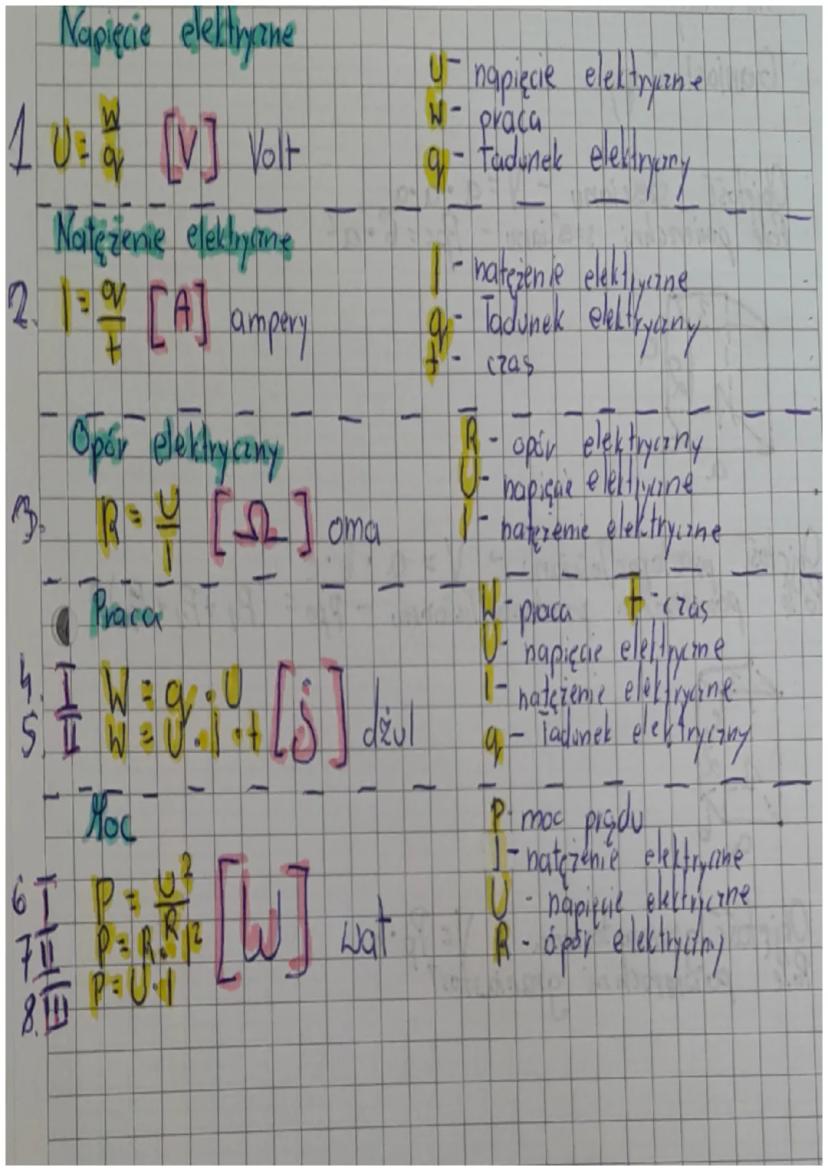 Napięcie elektryczne
U - napięcie elektryczne
W - praca
1 U = W/q [V] Volt
q - Ładunek elektryczny
Natężenie elektryczne
I - natężenie elektryczne
2. I = q/t [A] ampery
q - Ładunek elektryczny
t - czas
Opór elektryczny
R - opór elektryczny
U - napięcie elektryczne
3. R = U/I [Ω] oma
I - natężenie elektryczne
Praca
W - praca t - czas
U - napięcie elektryczne
4. I W = q · U [j] dżul
I - natężenie elektryczne
5. II W = U · I · t
q - Ładunek elektryczny
Moc
P - moc prądu
I - natężenie elektryczne
6 I P = U²/R [W] wat
U - napięcie elektryczne
7 II P = R · I²
R - opór elektryczny
8. III P = U · I